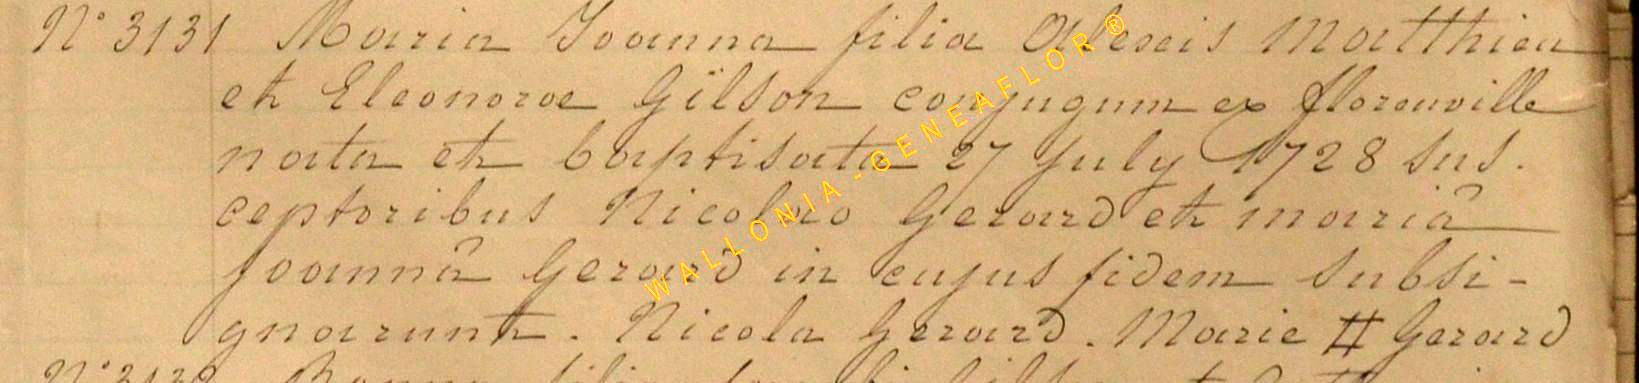 N° 3131 Maria Joanna filia Alexis Matthieu
et Eleonorae Gilson conjugum ex florenville
nata et baptisata 27 july 1728 sus.
ceptoribus Nicolao Gerard et mariâ
joannâ Gerard in cujus fidem subsi-
gnarunt. Nicola Gerard. Marie # Gerard
N° 3132
WALLONIA-GENEAFLOR®